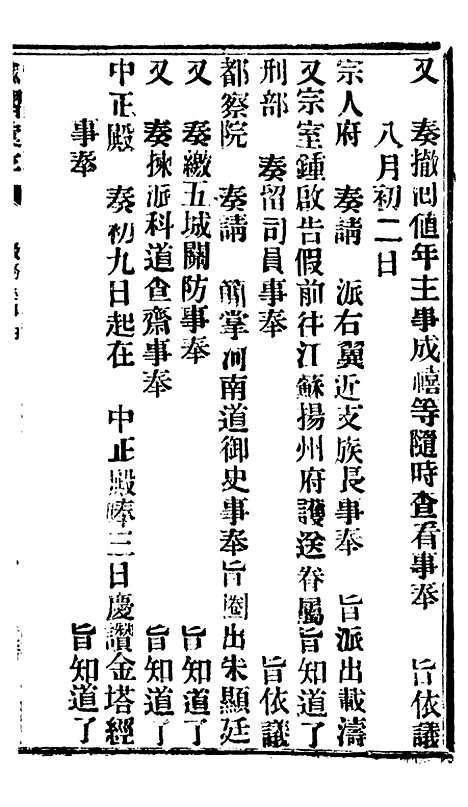 又　奏撤回值年主事成禧等隨時查看事奉　旨依議
八月初二日
宗人府　奏請　派右翼近支族長事奉　旨派出載濤
又宗室鍾啟告假前往江蘇揚州府護送眷屬旨知道了
刑部　奏留司員事奉　旨依議
都察院　奏請　簡掌河南道御史事奉旨圈出朱顯廷
又　奏繳五城關防事奉　旨知道了
又　奏揀派科道查齋事奉　旨知道了
中正殿　奏初九日起在　中正殿唪三日慶讚金塔經
事奉　旨知道了